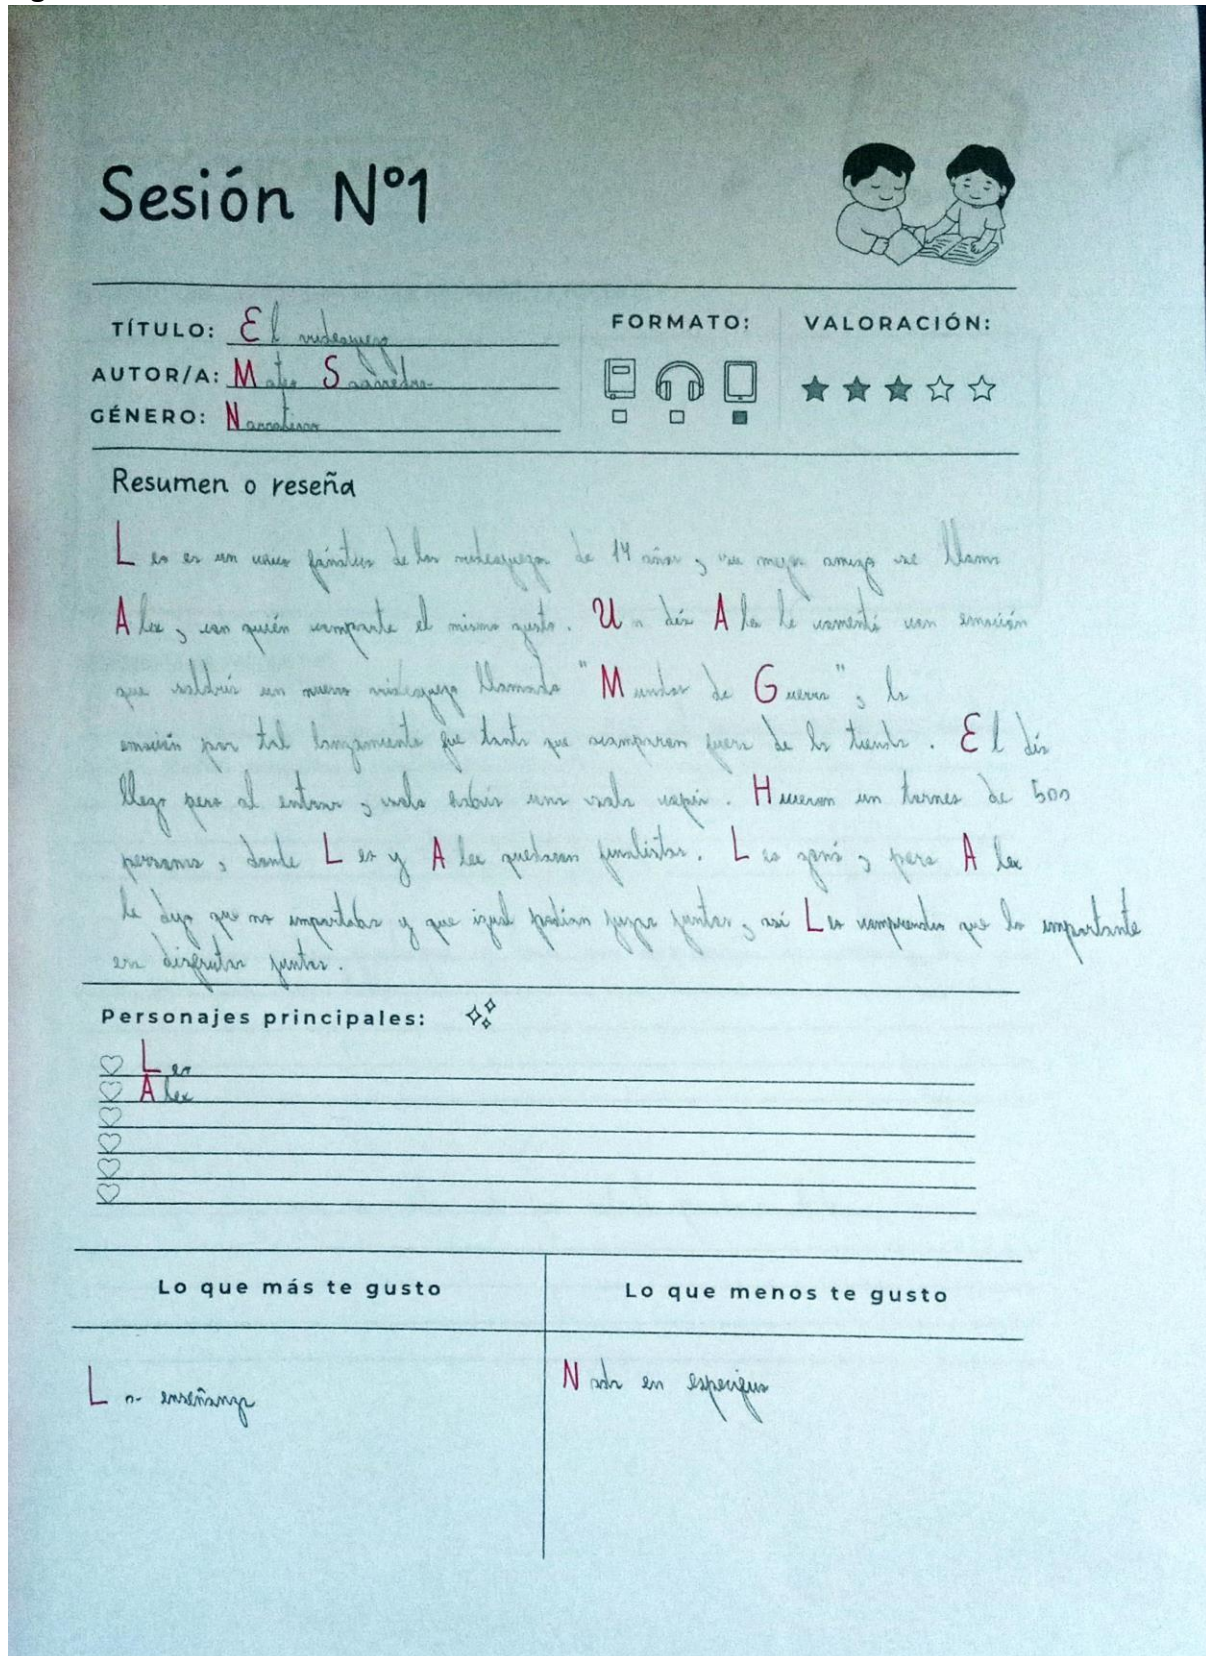 Sesión Nº1
TÍTULO: El videojuego
AUTOR/A: Mateo Saavedra
GÉNERO: Narrativo
FORMATO:
VALORACIÓN:
Resumen o reseña
Leo es un chico fánatico de los videojuegos de 14 años, su mejor amigo se llama
Alex, con quién comparte el mismo gusto. Un día Alex le comentó con emoción
que saldría un nuevo videojuego llamado "Mundos de Guerra", la
emoción por tal lanzamiento fue tanta que acamparon fuera de la tienda. El día
llego pero al entrar, solo había una sola copia. Hicieron un torneo de 500
personas, donde Leo y Alex quedaron finalistas. Leo ganó, pero Alex
le dijo que no importaba y que igual podían juntos, así Leo que lo importante
era disfrutar juntos.
Personajes principales:
Leo
Alex
Lo que más te gusto
Lo que menos te gusto
La enseñanza
Nada en especifico